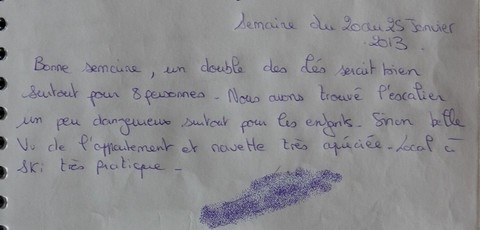 Semaine du 20 au 25 Janvier
2013.
Bonne semaine, un double des clés serait bien
surtout pour 8 personnes. Nous avons trouvé l'escalier
un peu dangereux surtout pour les enfants. Sinon belle
Vu de l'appartement et navette très apéciée. Local à
ski très pratique.